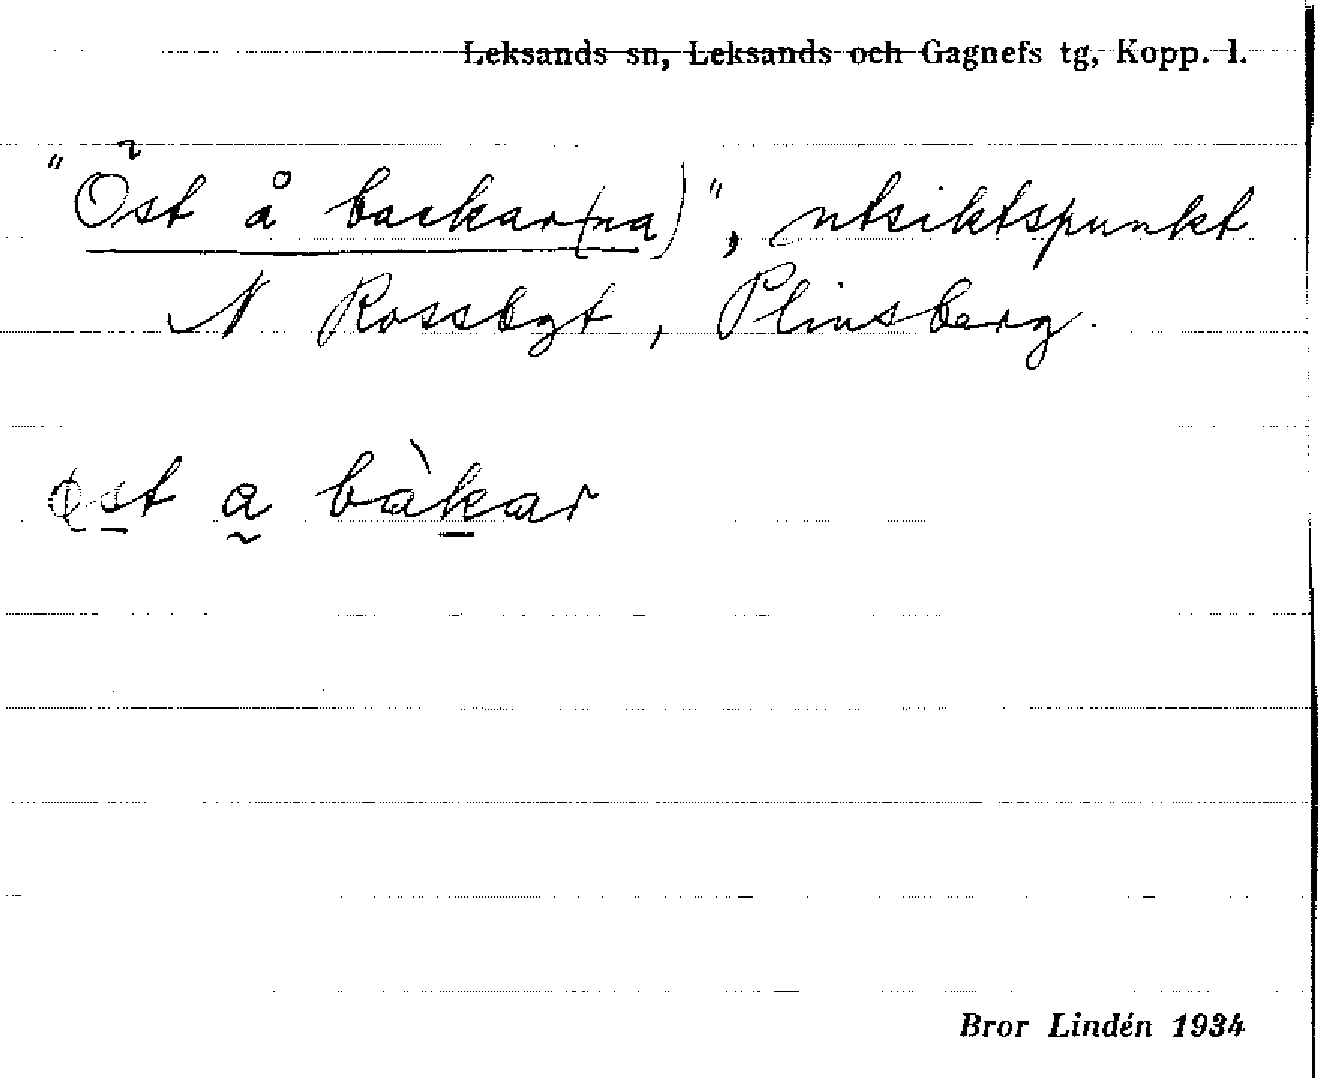 Leksands sn, Leksands och Gagnefs tg, Kopp. l.
"Öst å backar(na)", utsiktspunkt
N Rossbgt, Plinsberg.
öst a bàkar
Bror Lindén 1934